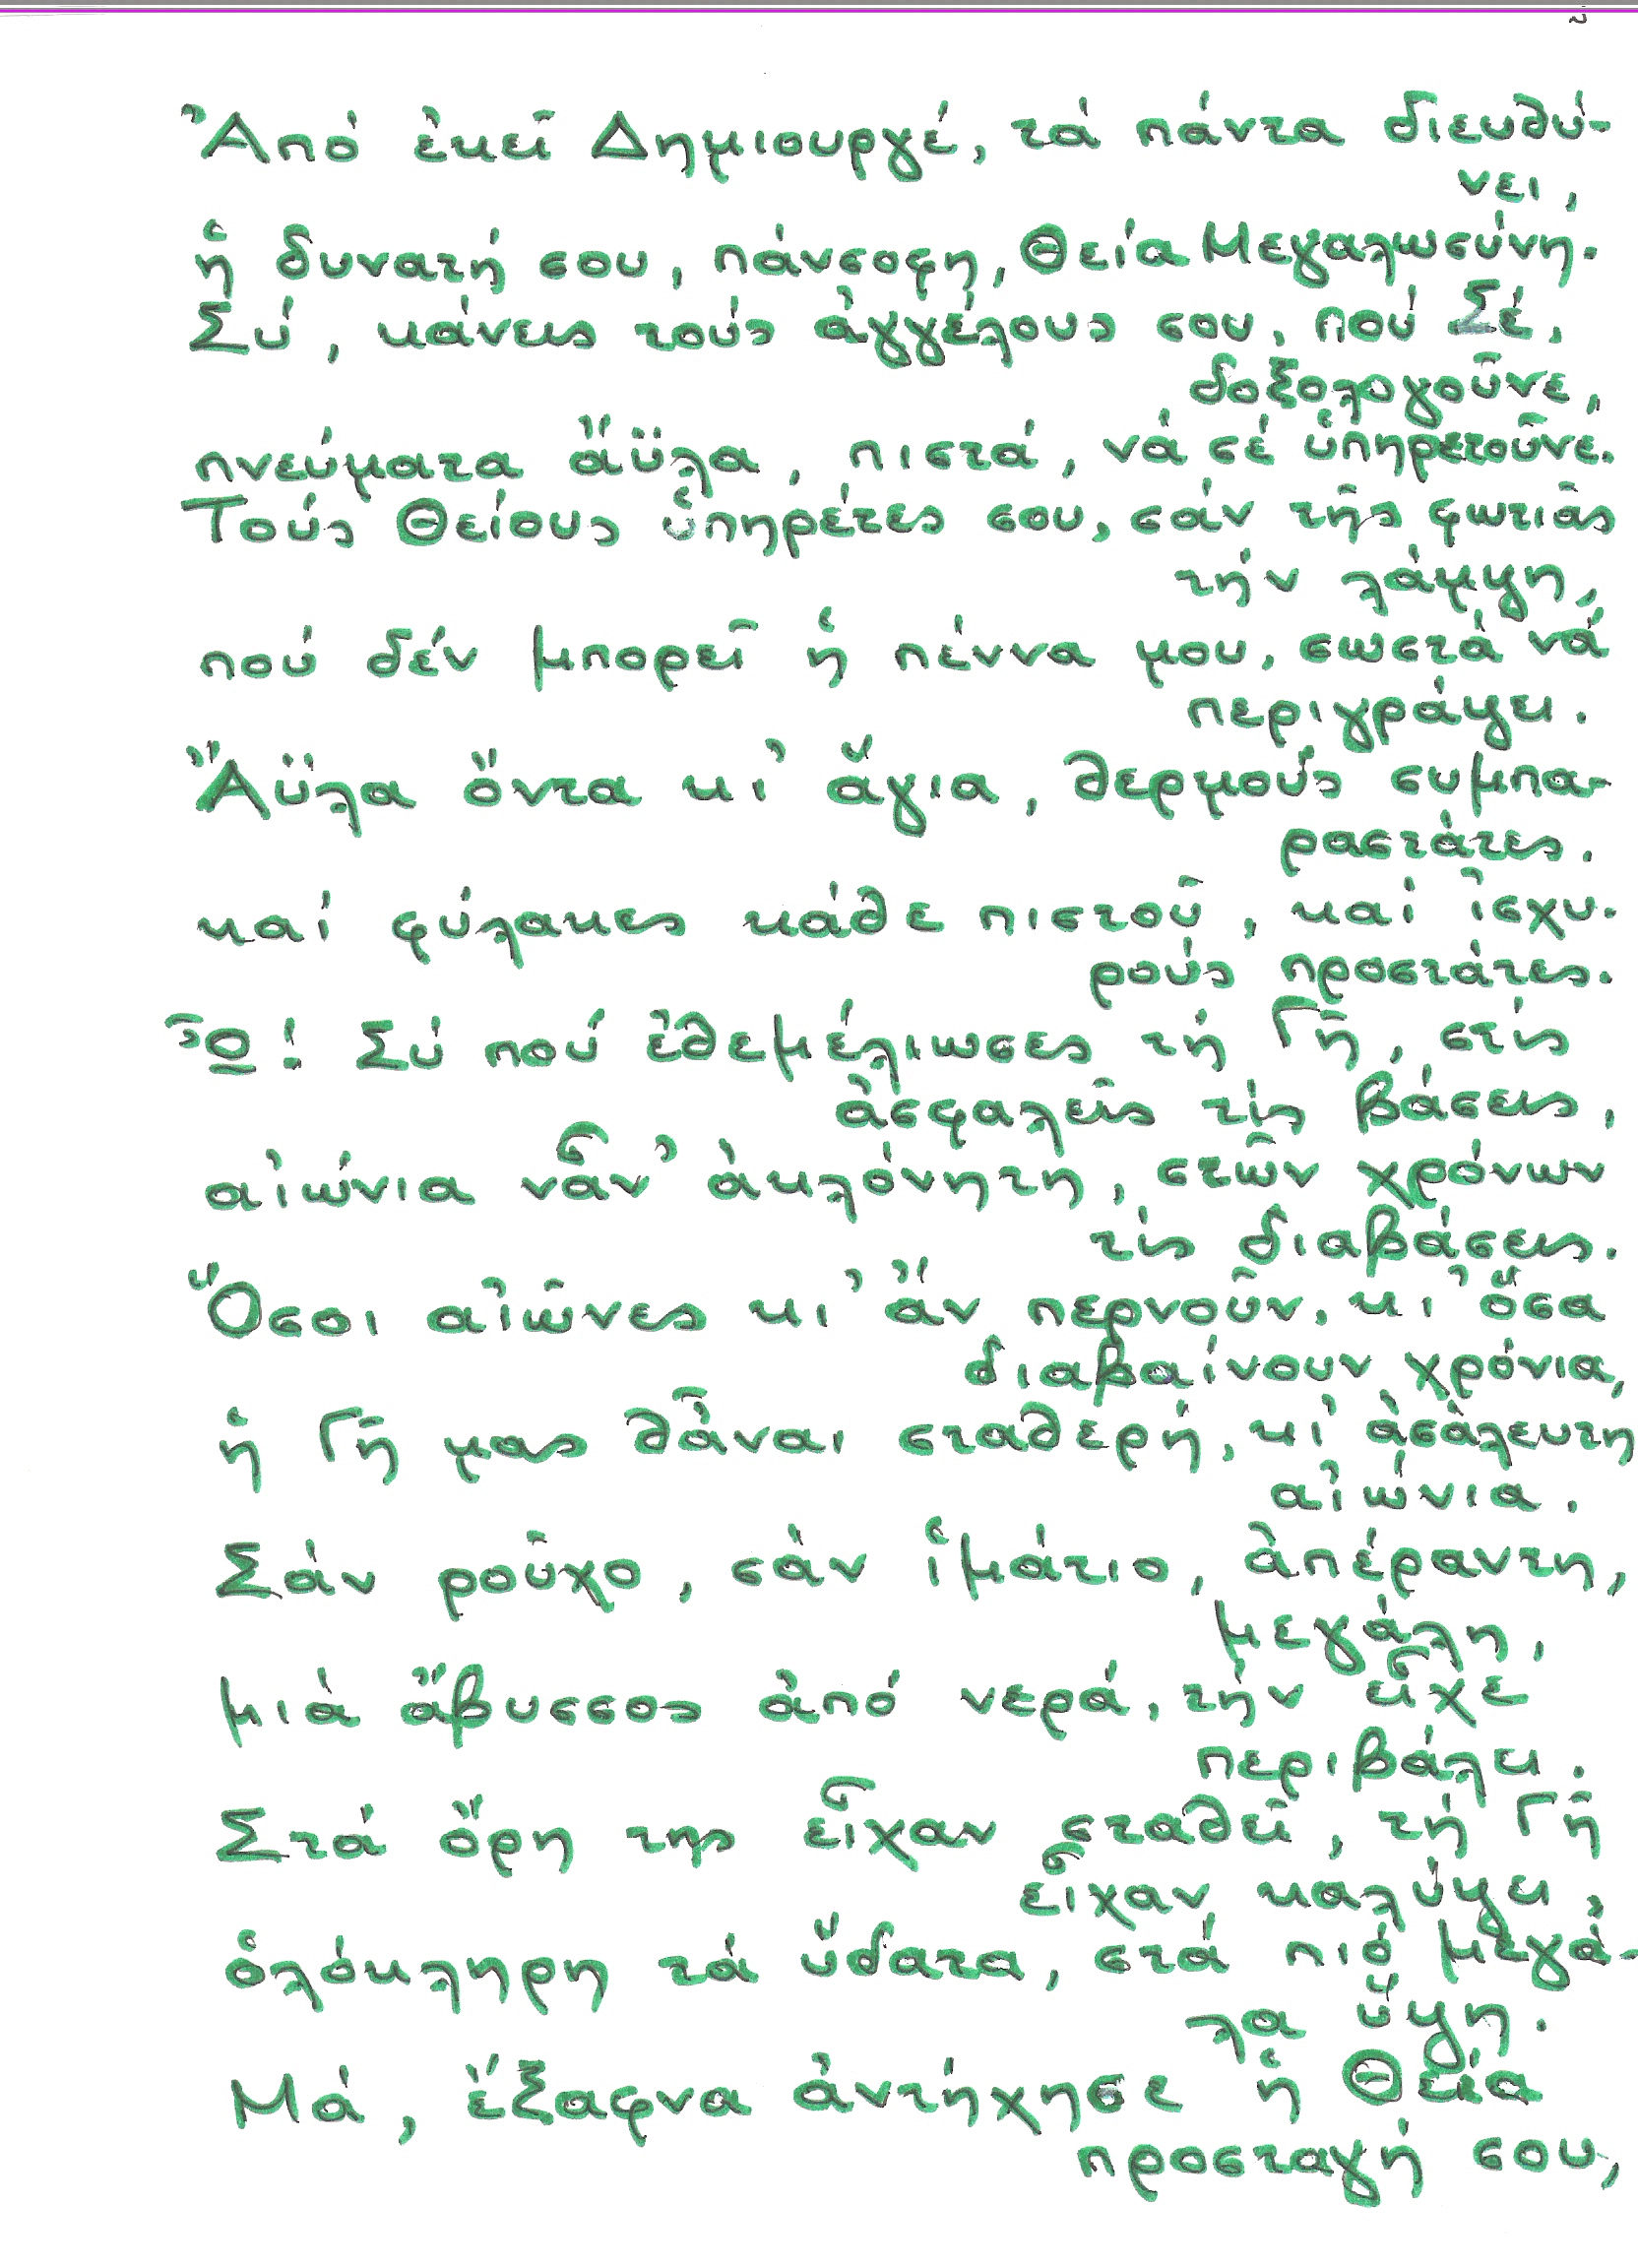 Ἀπό ἐκεῖ Δημιουργέ, τά πάντα διευθύ-
νει,
ἡ δυνατή σου, πάνσοφη, Θεία Μεγαλωσύνη.
Σύ, κάνεις τούς ἀγγέλους σου, πού Σέ,
δοξολογοῦνε,
πνεύματα ἄϋλα, πιστά, νά σέ ὑπηρετοῦνε.
Τούς Θείους ὑπηρέτες σου, σάν τῆς φωτιᾶς
τήν λάμψη,
πού δέν μπορεῖ ἡ πέννα μου, σωστά νά
περιγράψει.
Ἄϋλα ὄντα κι' ἅγια, θερμούς συμπα-
ραστάτες.
καί φύλακες κάθε πιστοῦ, καί ἰσχυ-
ρούς προστάτες.
Ὦ! Σύ πού ἐθεμέλιωσες τή Γῆ, στίς
ἀσφαλεῖς τίς βάσεις,
αἰώνια νἆν' ἀκλόνητη, στῶν χρόνων
τίς διαβάσεις.
Ὅσοι αἰῶνες κι' ἄν περνοῦν, κι' ὅσα
διαβαίνουν χρόνια,
ἡ Γῆ μας θἆναι σταθερή, κι' ἀσάλευτη
αἰώνια.
Σάν ροῦχο, σάν ἱμάτιο, ἀπέραντη,
μεγάλη,
μιά ἄβυσσος ἀπό νερά, τήν εἶχε
περιβάλει.
Στά ὄρη της εἶχαν σταθεῖ, τή Γῆ
εἶχαν καλύψει,
ὁλόκληρη τά ὕδατα, στά πιό μεγά-
λα ὕψη.
Μά, ἔξαφνα ἀντήχησε ἡ Θεία
προσταγή σου,